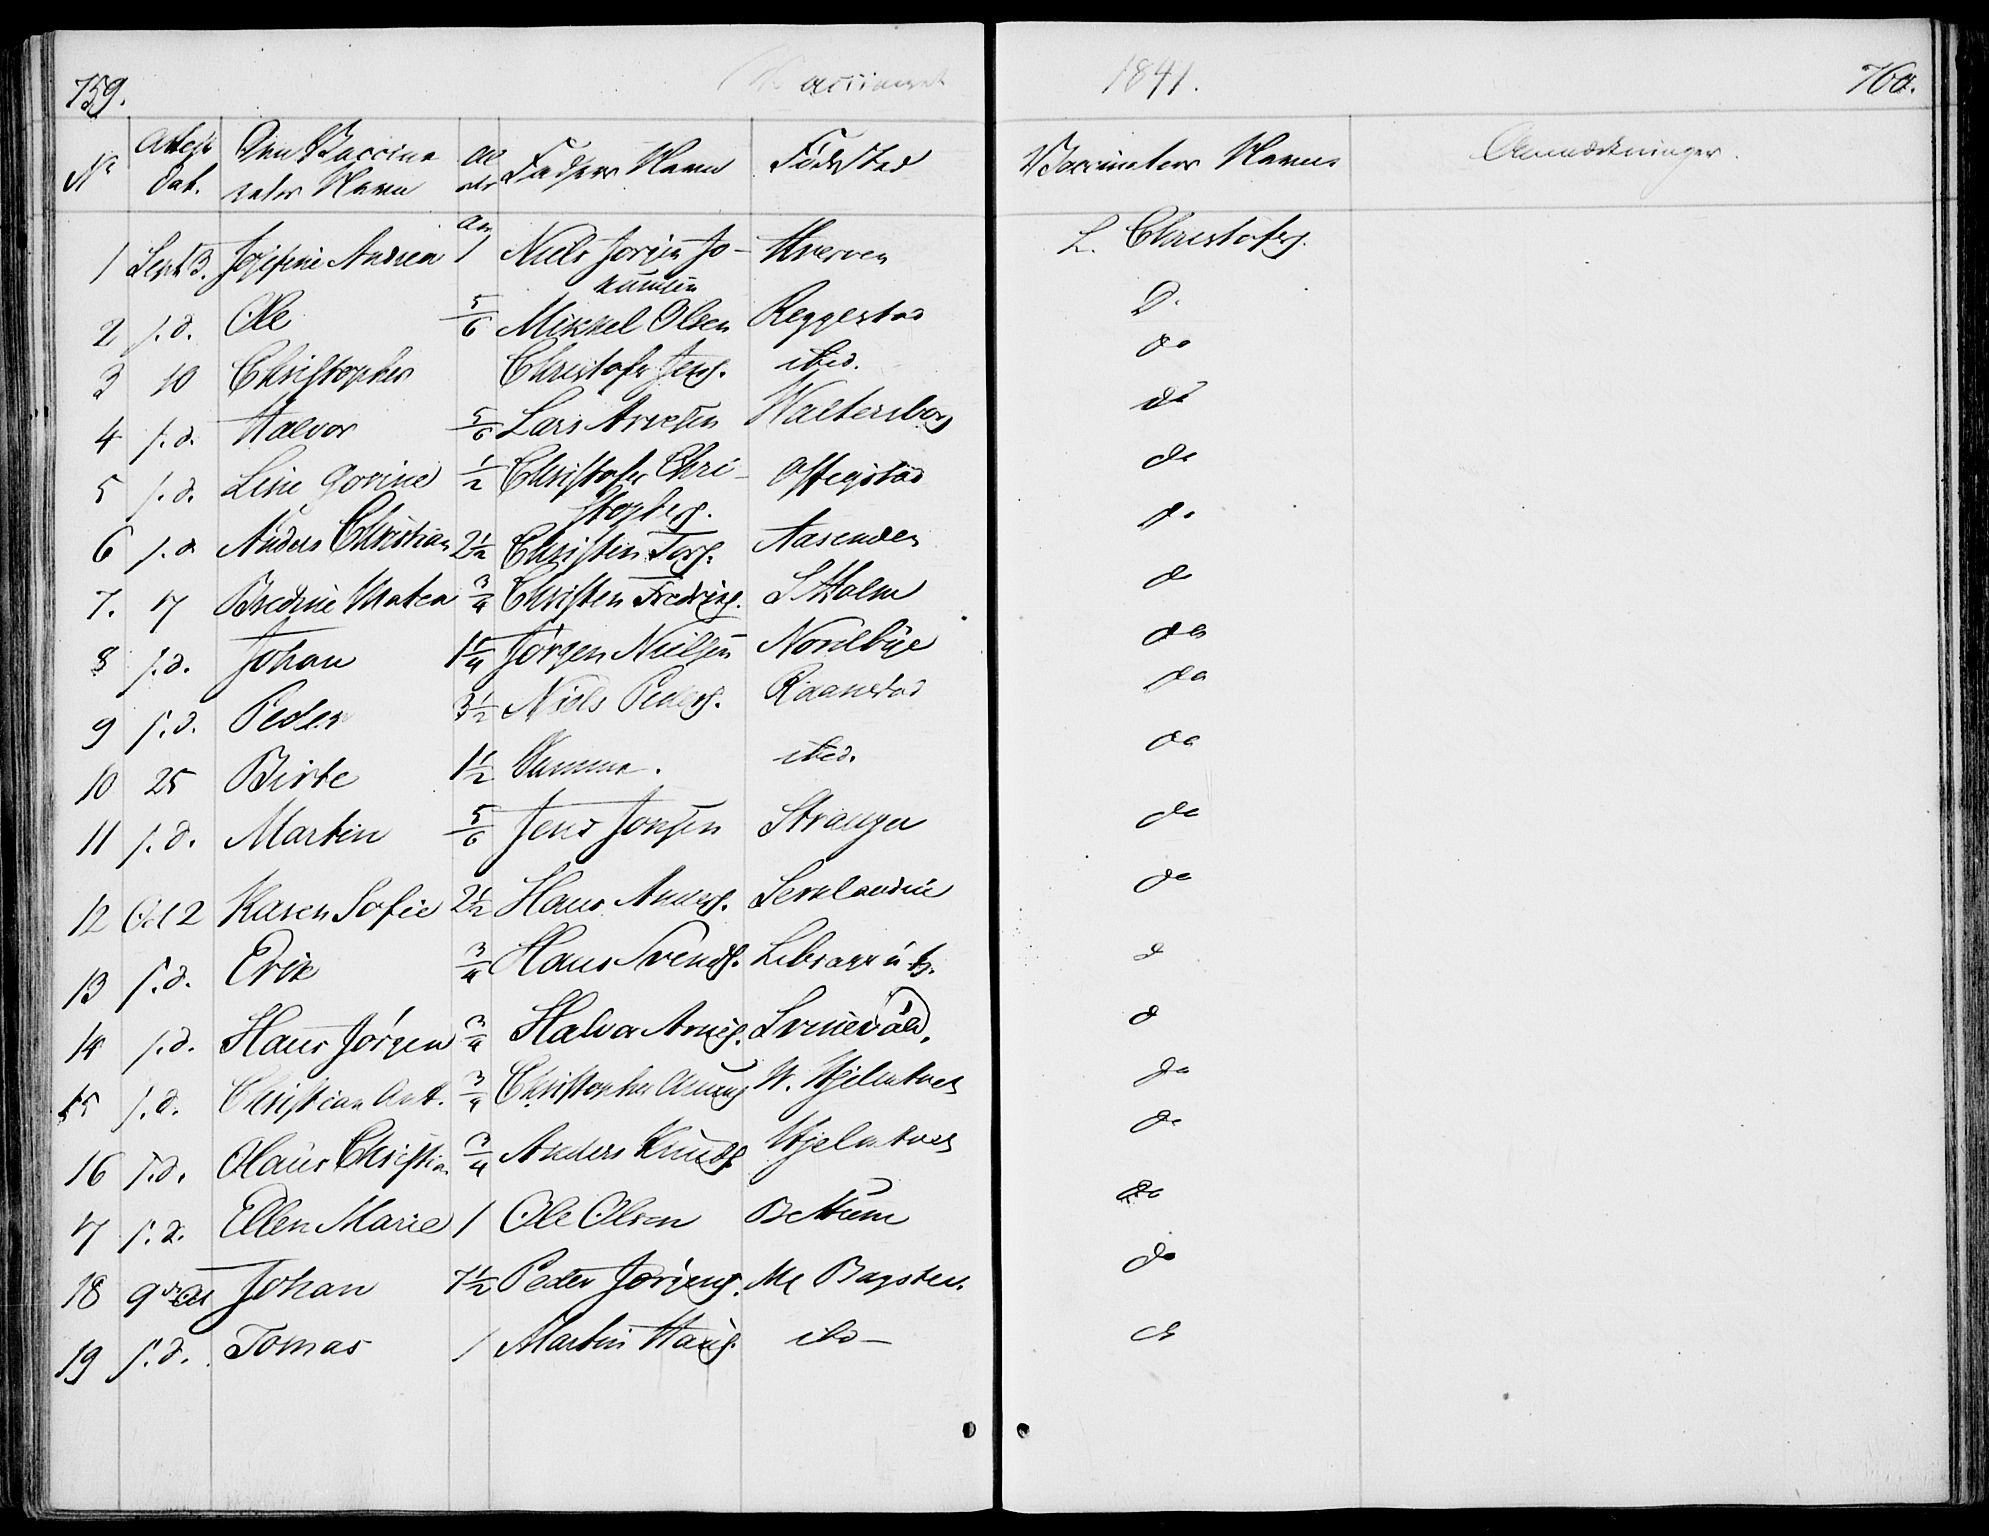 759.
1841.
760.
No Attest Dat. Den Vaccineredes Navn Alder Faders Navn Fødested Vaccinators Navn Anmærkninger.
1 Sept 3. Josefine Andrea 1 Niels Jörgen Jo- Kverven L. Christofers.
kumsen
2 s.d. Ole 5/6 Mikkel Olsen Reggestad D.
3 10 Christopher Christofer Jens. ibid. do
4 s.d. Halvor 5/6 Lars Arvesen Waltersborg do
5 s.d. Line Gorine 1/2 Christofer Chri- Offegstad do
stophers.
6 s.d. Anders Christian 2 1/2 Christen Tors. Aasenden do
7. 17 Bredine Matea 3/4 Christen Fredriks. S Holm do
8 s.d. Johan 1 1/4 Jørgen Nielsen Nordbye do
9 s.d. Peder 3 1/2 Niels Peders. Raanestad do
10 25 Birte 1 1/2 Samme. ibid. do
11 s.d. Martin 5/6 Jens Jonsen Stranger do
12 Oct 2 Karen Sofie 2 1/2 Hans Anders. do
13 s.d. Erik 3/4 Hans Svends. d
14 s.d. Hans Jörgen 3/4 Halvor Arnes. Svinevold. d
15 s.d. Christian Ant. 3/4 Christopher N. Hjelmtvet do
16 s.d. Olaus Christian 3/4 Anders Knuds. Hjelmtvet do
17 s.d. Ellen Marie 1 Ole Olsen Bettum do
18 9 Oct Johan 7 1/2 Peder Jörgens. do
19 s.d. Tomas 1 Martin Hans. ibd - do